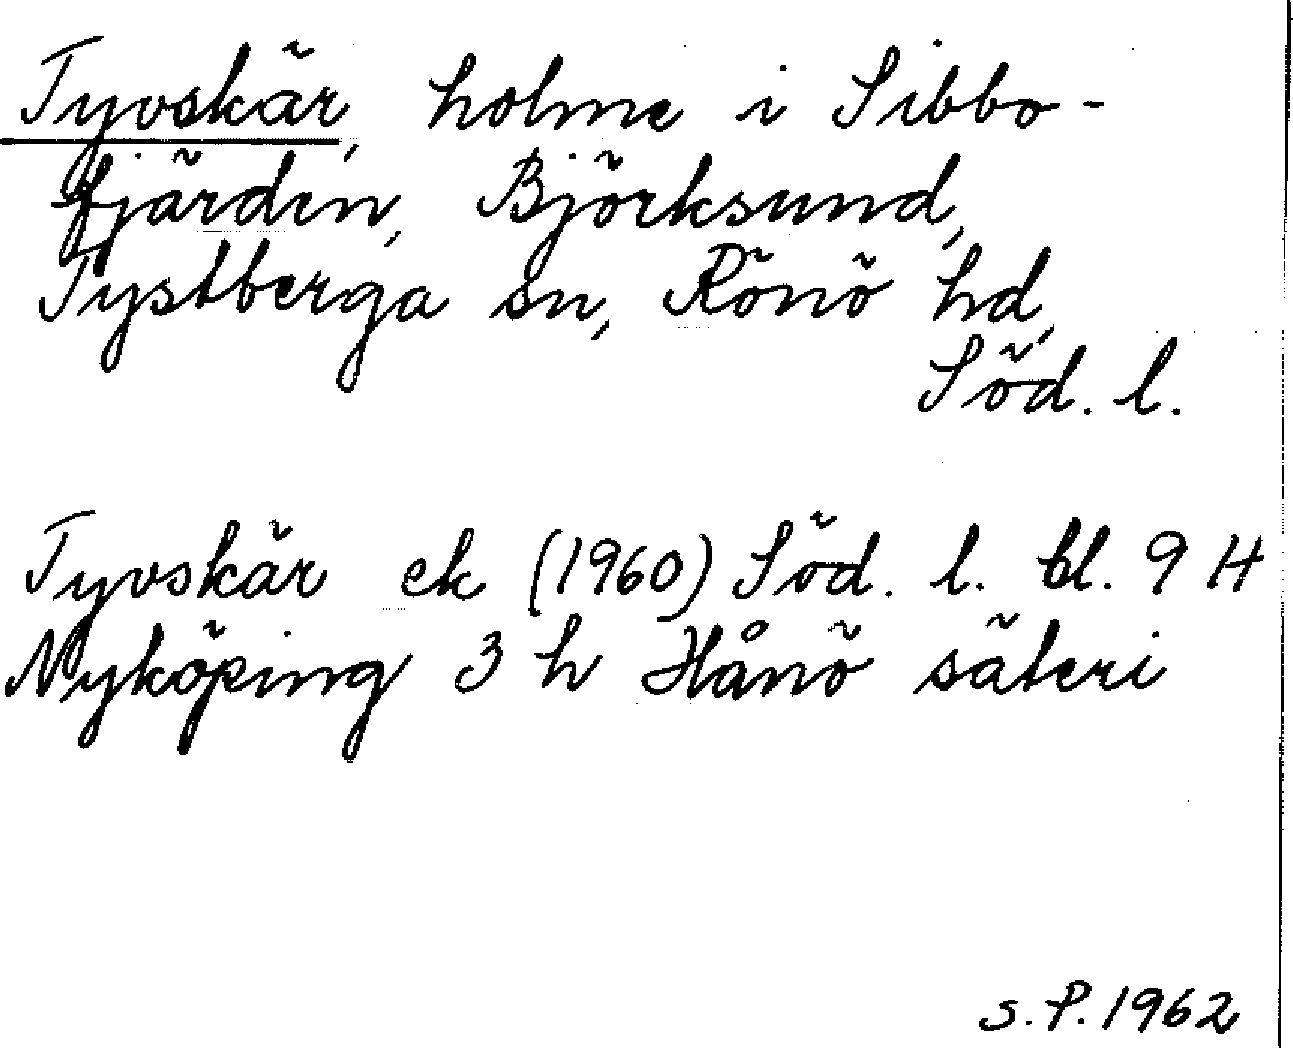 Tyvskär, holme i Sibbo-
fjärden, Björksund,
Tystberga sn, Rönö hd,
Söd. l.
Tyvskär ek (1960) Söd. l. bl. 9 H
Nyköping 3 h Hånö säteri
S.P. 1962